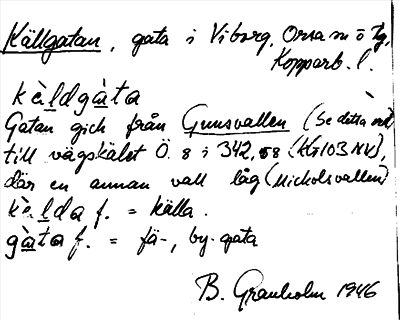 Källgatan, gata i Viborg, Orsa sn ö tg,
Kopparb. l.
kèldgàta
Gatan gick från Gunsvallen (Se detta ord)
till vägskälet Ö. 8 i 342,58 (KG103NV),
där en annan vall låg (Nicholsvallen)
kèlda f. = källa.
gàta f. = fä-, by-gata
B. Granholm 1946